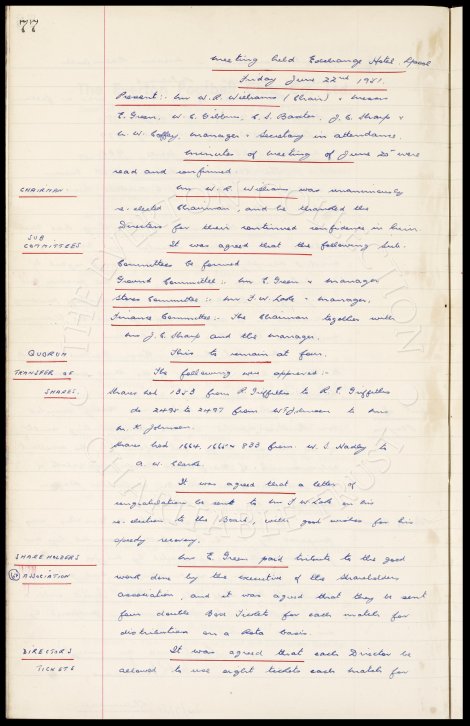 77
Meeting held Exchange Hotel, L'pool
Friday June 22nd 1951.
Present:- Mr W.R. Williams (Chair) & Messrs
E. Green, W.C. Gibbins, C.S. Baxter, J.C. Sharp &
W. Coffey, Manager & Secretary in attendance.
Minutes of Meeting of June 20th were
read and confirmed
CHAIRMAN.
Mr W.R. Williams, was unanimously
re-elected Chairman, and he thanked the
Directors for their continued confidence in him
SUB
COMMITTEES
It was agreed that the following Sub-
Committees be formed
Ground Committee:- Mr E. Green & Manager
Stores Committee:- Mr T.W. Lake & Manager.
Finance Committee:- The Chairman together with
Mr J.C. Sharp and the Manager.
QUORUM
This to remain at four.
TRANSFER OF
SHARES.
The following was approved:-
Shares No 1353 from P. Griffiths to R.E. Griffiths
do 2495 to 2497 from W Johnson to
K. Johnson.
Shares No 1664, 1665 & 833 from W.S. Hadley to
A.W. Clarke.
It was agreed that a letter of
congratulation be sent to Mr T.W. Lake on his
re-election to the Board, with good wishes for his
speedy recovery.
SHAREHOLDERS
ASSOCIATION
Mr E. Green paid tribute to the good
work done by the executive of the Shareholders
association, and it was agreed that they be sent
four double Box Tickets for each match for
distribution on a Rota basis.
DIRECTORS
TICKETS
It was agreed that each Director be
allowed to use eight tickets each match for
THE EVERTON COLLECTION CHARITABLE TRUST